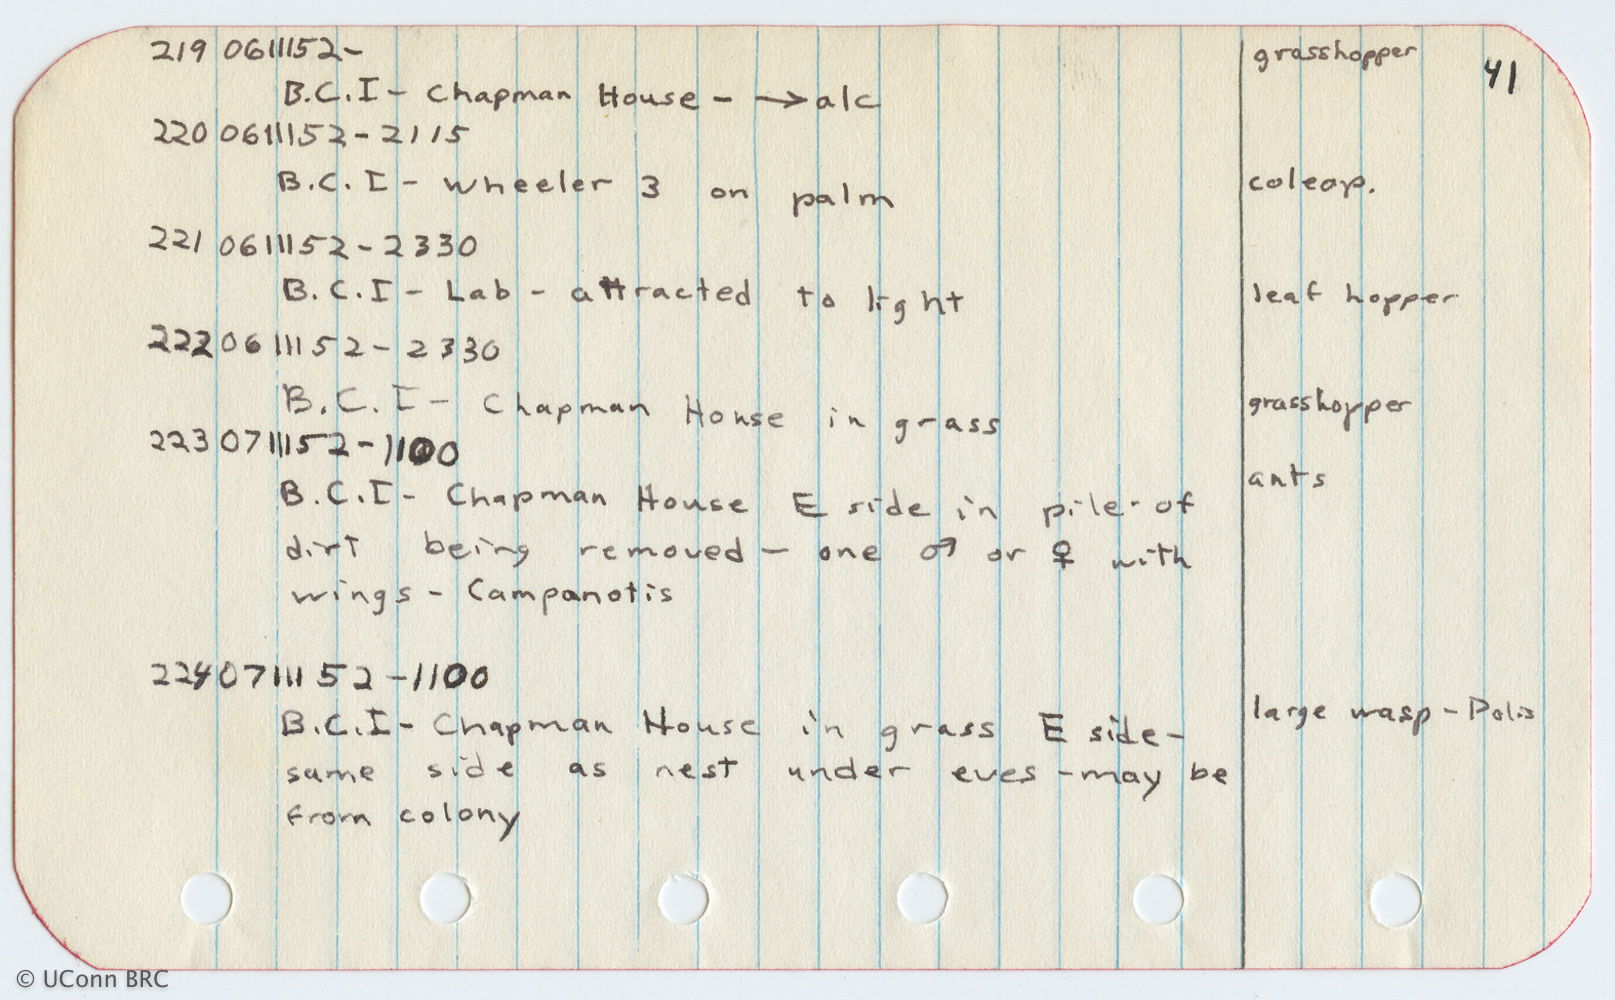 219 0611152- grasshopper 41
B.C.I - Chapman House - → alc
220 0611152-2115
B.C.I - Wheeler 3 on palm coleop.
221 0611152-2330
B.C.I - Lab - attracted to light leaf hopper
222 0611152-2330
B.C.I - Chapman House in grass grasshopper
223 0711152-1100
B.C.I - Chapman House E side in pile of ants
dirt being removed - one ♂ or ♀ with
wings - Campanotis
224 0711152-1100
B.C.I - Chapman House in grass E side - large wasp - Polis
same side as nest under eves - may be
from colony
© UConn BRC